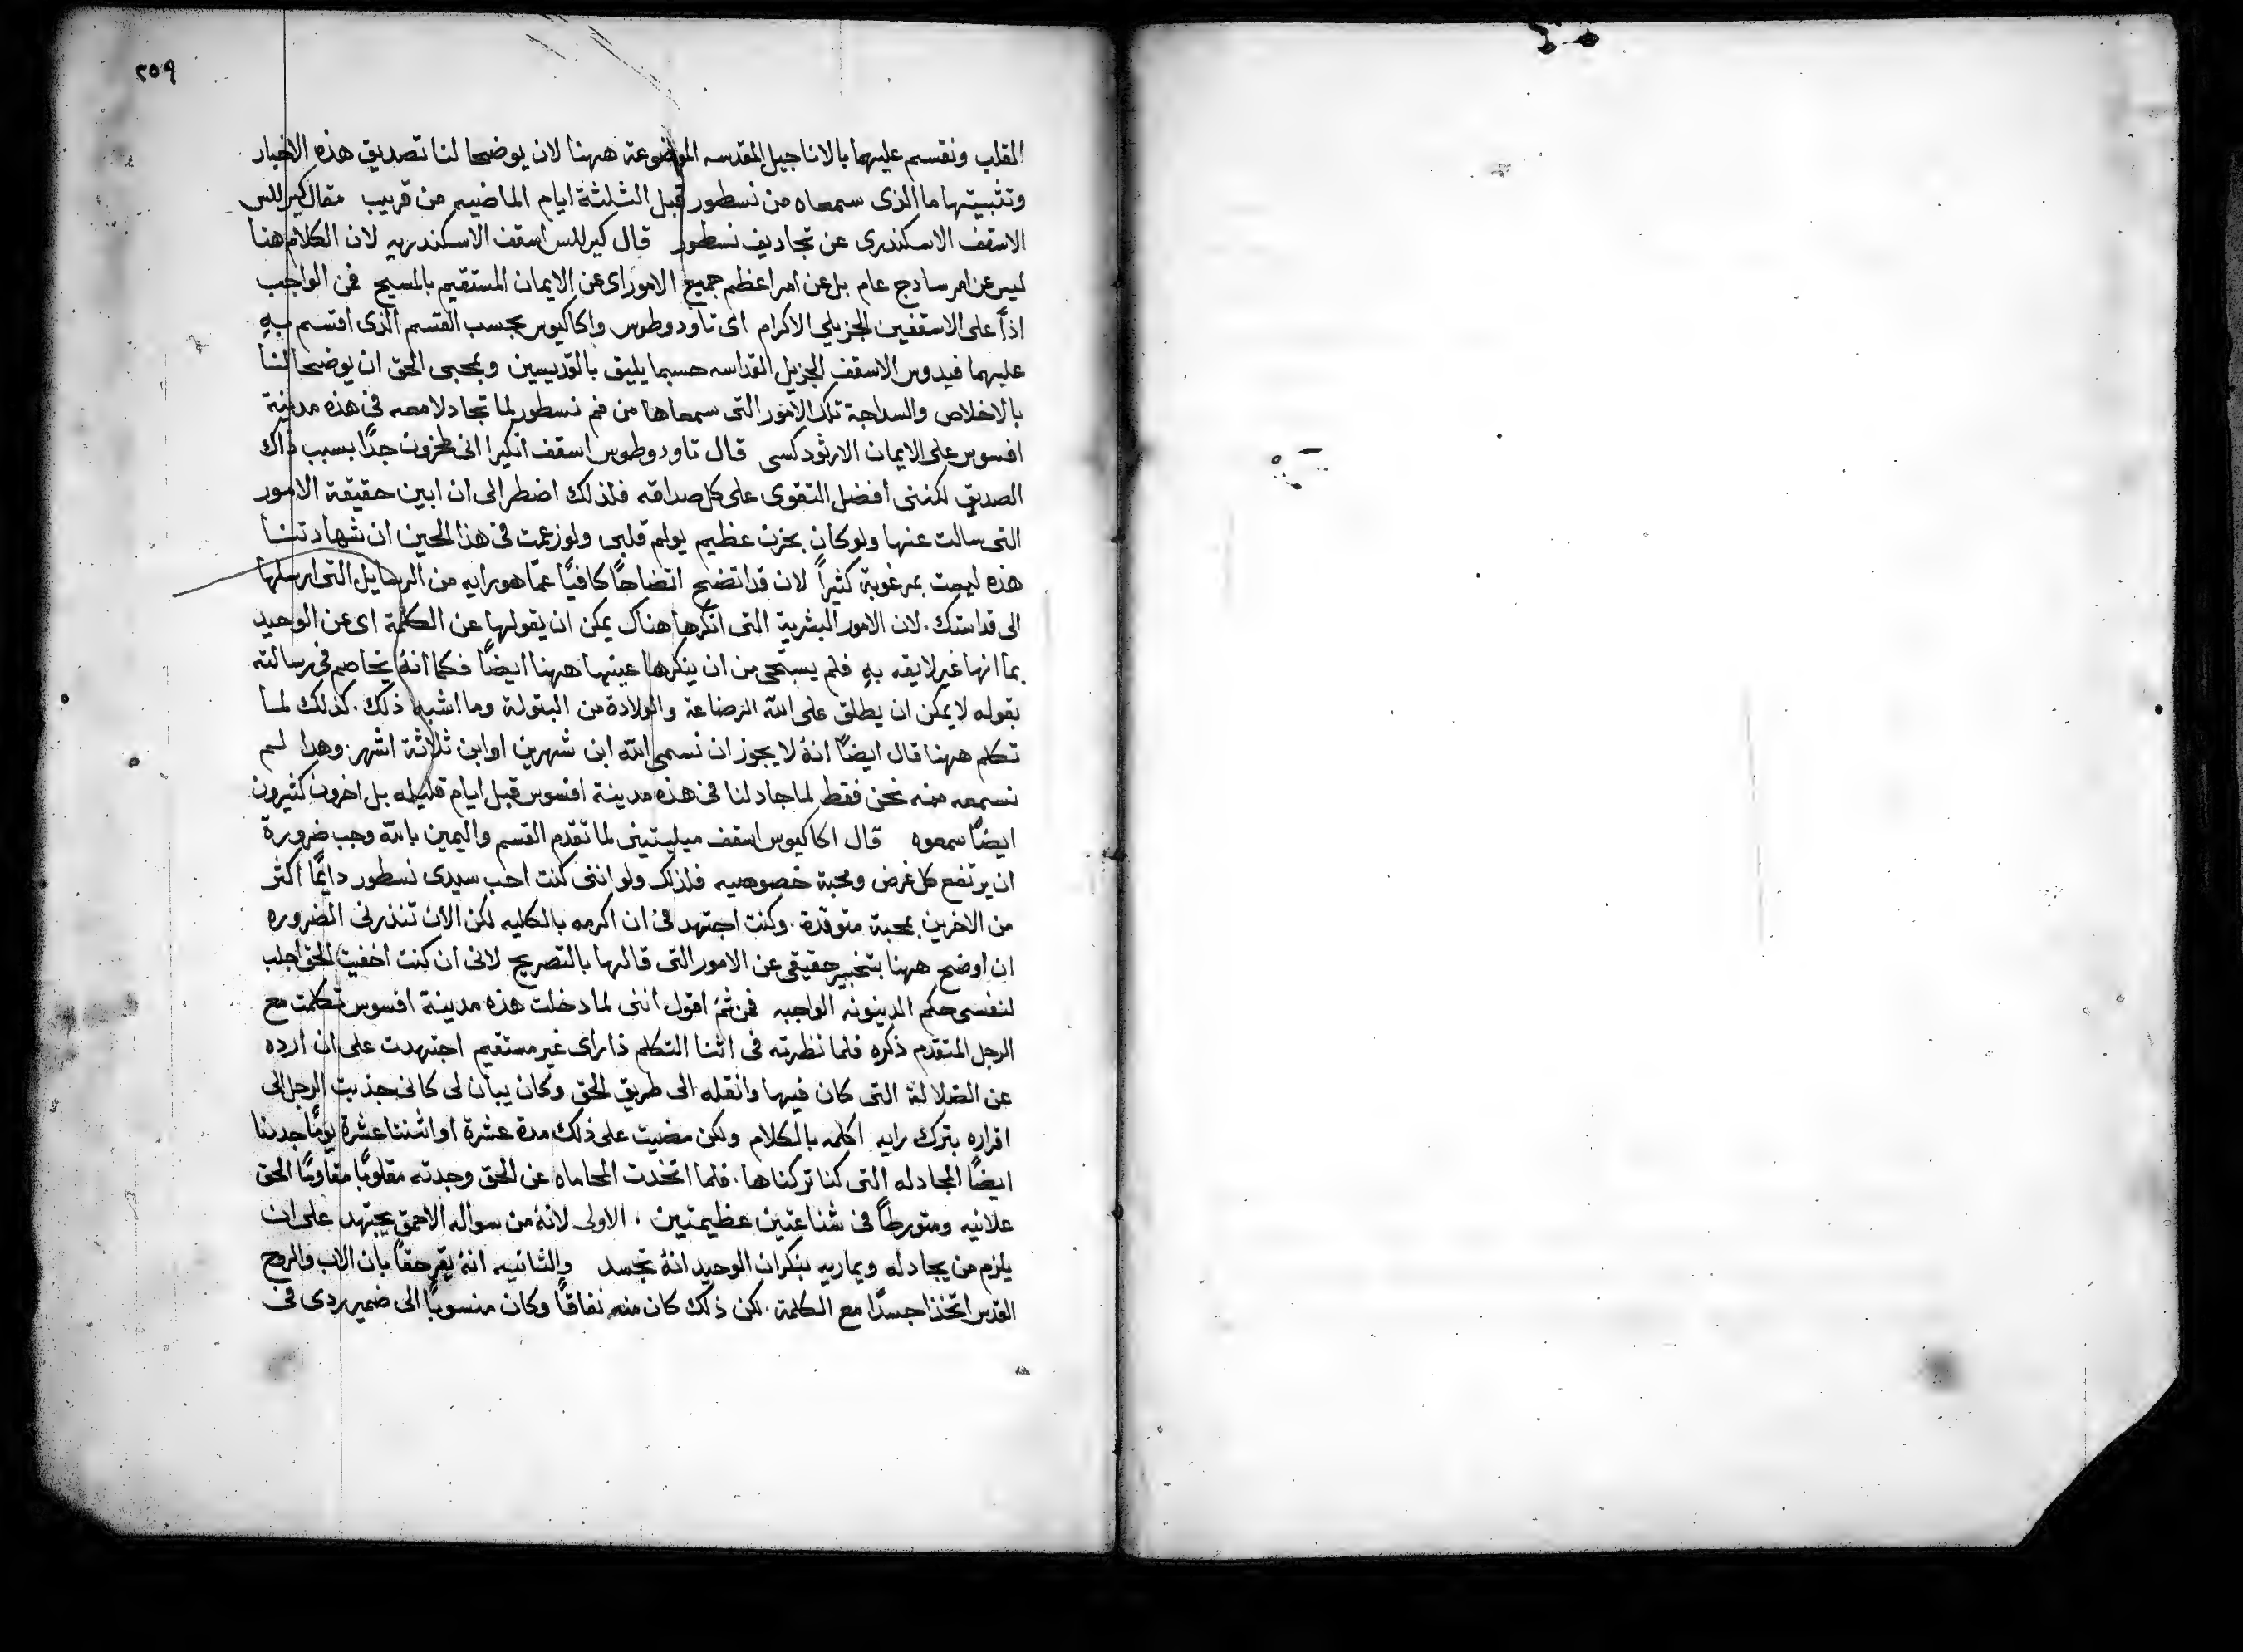 ٢٥٩
القلب ونقسم عليهما بالاناجيل المقدسه الموضوعة ههنا لان يوضحا لنا تصديق هذه الاخبار
وتثبيتها ما الذى سمعاه من نسطور قبل الثلثة ايام الماضيه من قريب مقال كيرللس
الاسقف الاسكندرى عن تجاديف نسطور قال كيرللس اسقف الاسكندريه لان الكلام هنا
ليس عن امر سادج عام بل عن امر اعظم جميع الامور اى عن الايمان المستقيم بالمسيح فمن الواجب
اذاً على الاسقفين الجزيلي الاكرام اى تاودوطوس واكاكيوس بحسب القسم الذى اقتسم به
عليهما فيدوس الاسقف الجزيل القداسه حسبما يليق بالقديسين وبمحبى الحق ان يوضحا لنا
بالاخلاص والسداجة تلك الامور التى سمعاها من فم نسطور لما تجادلا معه فى هذه مدينة
افسوس على الايمان الارثودكسى قال تاودوطوس اسقف انكيرا انى لمحزون جدًا بسبب ذاك
الصديق لكننى افضل التقوى على كل صداقه فلذلك اضطر الى ان ابين حقيقة الامور
التى سالت عنها ولو كان بحزن عظيم يولم قلبى ولو زعمت فى هذا الحين ان شهادتنا
هذه ليست بمرغوبة كثيراً لان قد اتضح اتضاحًا كافيًا عمّا هو رايه من الرسايل التى ارسلها
الى قداستك. لان الامور البشرية التى انكرها هناك يمكن ان يقولها عن الكلمة اى عن الوحيد
بما انها غير لايقه به فلم يستحى من ان ينكرها عينها ههنا ايضًا فكما انهُ يخاصم فى رسالته
بقوله لا يمكن ان يطلق على الله الرضاعة والولادة من البتولة وما اشبه ذلك. كذلك لما
تكلم ههنا قال ايضًا انهُ لا يجوز ان نسمى الله ابن شهرين او ابن ثلاثة اشهر. وهدا لم
نسمعه منه نحن فقط لما جادلنا فى هذه مدينة افسوس قبل ايام قليله بل اخرون كثيرون
ايضًا سمعوه قال اكاكيوس اسقف ميليتينى لما تقدم القسم واليمين بالله وجب ضرورة
ان يرتفع كل غرض ومحبة خصوصيه فلذلك ولو اننى كنت احب سيدى نسطور دايمًا اكثر
من الاخرين بمحبة متوقدة. وكنت اجتهد فى ان اكرمه بالكليه لكن الان تنذرنى الضروره
ان اوضح ههنا بتخبير حقيقى عن الامور التى قالها بالتصريح لانى ان كنت اخفيت الحق اجلب
لنفسى حكم الدينونه الواجبه فمن ثمَّ اقول اننى لما دخلت هذه مدينة افسوس تكلمت مع
الرجل المتقدم ذكره فلما نظرته فى اثنا التكلم ذا راى غير مستقيم اجتهدت على ان ارده
عن الضلالة التى كان فيها وانقله الى طريق الحق وكان يبان لى كانى جذبت الرجل الى
اقراره بترك رايه اكلمه بالكلام ولكن مضيت على ذلك مدة عشرة او اثنتا عشرة يومًا جددنا
ايضًا المجادله التى كنا تركناها. فلما اتخدت المحاماه عن الحق وجدته مقلوبًا مقاومًا الحق
علانيه ومتورطاً فى شناعتين عظيمتين. الاولى لانهُ من سواله الاحمق يجتهد على ان
يلزم من يجادله ويماريه بنكران الوحيد انهُ تجسد والثانيه انهُ يقر حقًا بان الاب والروح
القدس اتخذا جسدًا مع الكلمة. لكن ذلك كان منه نفاقًا وكان منسوبًا الى ضمير ردى فى